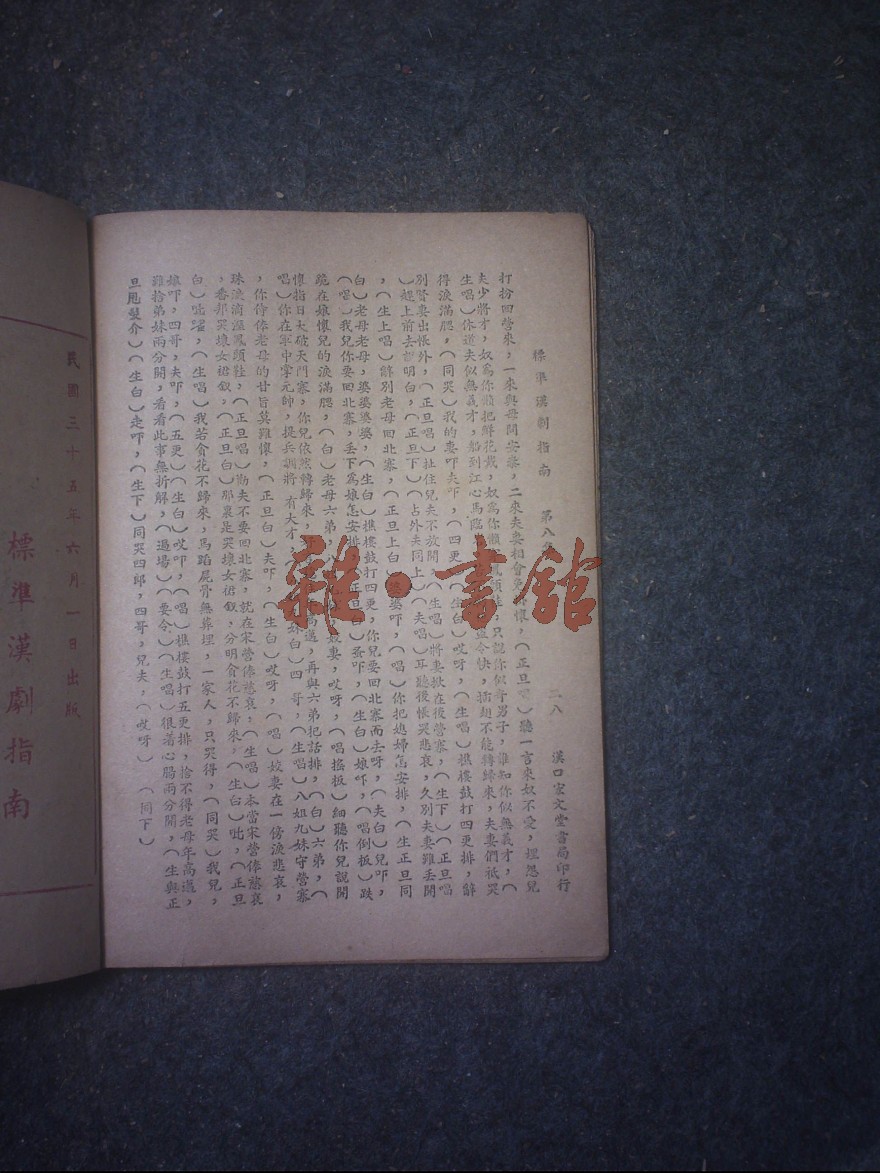 標準漢劇指南 第八 二八 漢口宏文堂書局印行
打扮回營來，一來與母問安泰，二來夫妻相會 懷，（正旦 ）聽一言來奴不愛，埋怨兒
夫少將才，奴為你懶把鮮花戴，奴為你懶 鳳頭鞋，只說你似奇男子，誰知你似無義才，（
生唱）你道夫似無義才，船到江心馬臨 令快，插翅不能轉歸來，夫妻們祇哭
得淚滿腮，（同哭）我的妻吓夫吓，（四更）（生白）哎呀，（生唱）樵樓鼓打四更排，辭
別賢妻出帳外，（正旦唱）扯住兒夫不放開，（生唱）將妻掀在後營寨，（生下）（正旦唱
）趕上前去說明白，（正旦下）（占外夫同上）（夫唱）耳聽後帳哭悲哀，久別夫妻難丟開
，（生上唱）辭別老母回北寨，（正旦上白）婆婆吓，（唱）你把媳婦怎安排，（生正旦同
白）老母老母，婆婆婆婆，（生白）樵樓鼓打四更，你兒要回北寨而去呀，（夫白）兒吓，
（唱）我兒你要回北寨，丟下為娘怎安排，（正旦白）蚤吓，（生白）娘吓，（唱倒板）跌
跪在娘懷兒的淚滿腮，（白）老母六弟，八 妻，哎呀，（唱搖板）細聽你兒說開
懷指日大破天門寨，你兒依然轉歸來， 高邁，再與六弟把話排，（白）六弟，（
唱）你在軍中掌元帥，提兵調將有大才， 妹白）四哥，（生唱）八姐九妹守營寨
，你侍俸老母的甘旨莫難懷，（正旦白）夫吓，（生白）哎呀，（唱）姣妻在一傍淚悲哀，
珠淚滴濕鳳頭鞋，（正旦唱）勸夫不要回北寨，就在宋營俸慈哀，（生唱）本當宋營俸慈哀
，番邦哭壞女裙釵，（正旦白）那裏是哭壞女裙釵，分明貪花不歸來，（生白）呲，（正旦
白）呲 ，（生唱）我若貪花不歸來，馬蹈屍骨無葬埋，一家人，只哭得，（同哭）我兒，
娘吓，四哥，夫吓，（五更）（生白）哎吓，（唱）樵樓鼓打五更排，捨不得老母年高邁，
難捨弟妹兩分開，看看此事無折解，（過場）（要令）（生唱）很着心腸兩分開，（生與正
旦甩髮介）（生白）走吓，（生下）同哭四郎，四哥，兒夫，（哎呀）（同下）
民國三十五年六月一日出版
標準漢劇指南
雜·書館